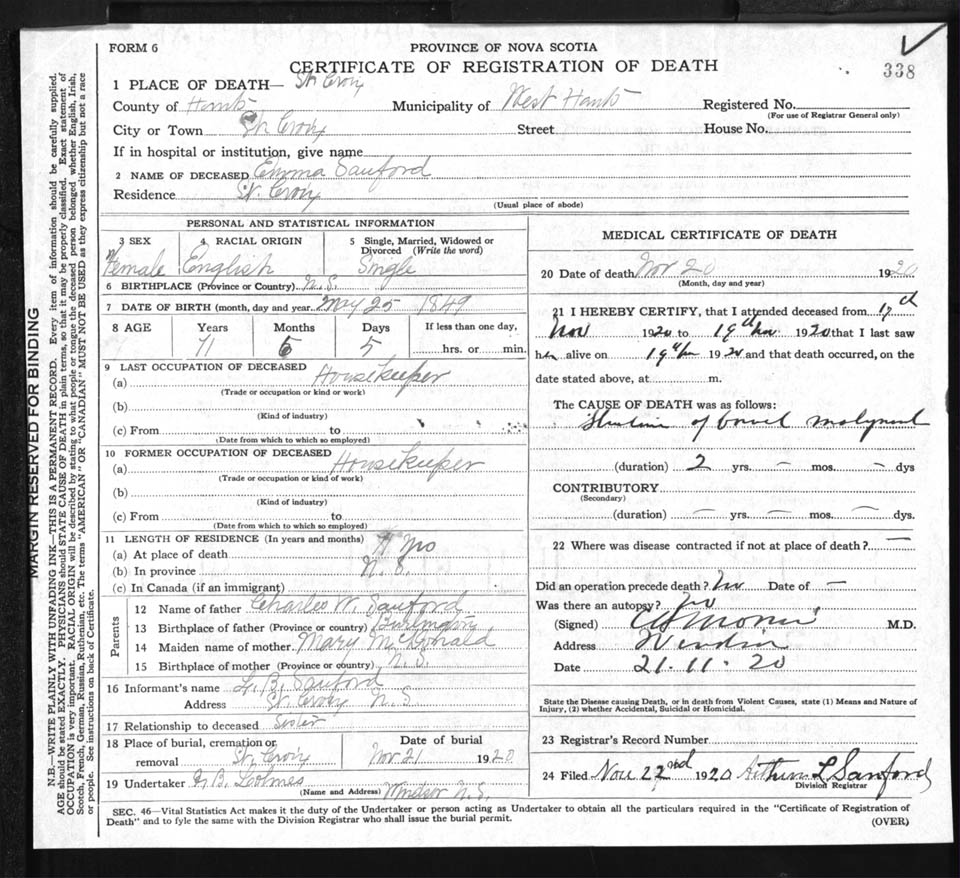 FORM 6
PROVINCE OF NOVA SCOTIA
CERTIFICATE OF REGISTRATION OF DEATH
338
1 PLACE OF DEATH— St. Croix
County of Hants Municipality of West Hants Registered No.
(For use of Registrar General only)
City or Town St. Croix Street House No.
If in hospital or institution, give name
2 NAME OF DECEASED Emma Sanford
Residence St. Croix
(Usual place of abode)
MARGIN RESERVED FOR BINDING
N.B.—WRITE PLAINLY WITH UNFADING INK—THIS IS A PERMANENT RECORD. Every item of information should be carefully supplied.
AGE should be stated EXACTLY. PHYSICIANS should STATE CAUSE OF DEATH in plain terms, so that it may be properly classified. Exact statement of
OCCUPATION is very important. RACIAL ORIGIN will be described by stating to what people or tongue the deceased person belonged whether English, Irish,
Scotch, French, German, Russian, Ruthenian, etc. The terms "AMERICAN" OR "CANADIAN" MUST NOT BE USED as they express citizenship but not a race
or people. See instructions on back of Certificate.
PERSONAL AND STATISTICAL INFORMATION
3 SEX 4 RACIAL ORIGIN 5 Single, Married, Widowed or
Divorced (Write the word)
Female English Single
6 BIRTHPLACE (Province or Country) N.S.
7 DATE OF BIRTH (month, day and year) May 25 1849
8 AGE Years Months Days If less than one day,
71 5 5 hrs. or min.
9 LAST OCCUPATION OF DECEASED
(a) Housekeeper
(Trade or occupation or kind or work)
(b)
(Kind of industry)
(c) From to
(Date from which to which so employed)
10 FORMER OCCUPATION OF DECEASED
(a) Housekeeper
(Trade or occupation or kind of work)
(b)
(Kind of industry)
(c) From to
(Date from which to which so employed)
11 LENGTH OF RESIDENCE (In years and months)
(a) At place of death yrs
(b) In province N.S.
(c) In Canada (if an immigrant)
Parents
12 Name of father Charles W. Sanford
13 Birthplace of father (Province or country)
14 Maiden name of mother Mary McDonald
15 Birthplace of mother (Province or country) N.S.
16 Informant's name L. B. Sanford
Address St. Croix N.S.
17 Relationship to deceased Sister
18 Place of burial, cremation or Date of burial
removal St. Croix Nov 21 1920
19 Undertaker B. Loomes
(Name and Address) Windsor N.S.
MEDICAL CERTIFICATE OF DEATH
20 Date of death Nov 20 1920
(Month, day and year)
21 I HEREBY CERTIFY, that I attended deceased from 17th
Nov 1920 to 19th Nov 1920 that I last saw
her alive on 19th Nov 1920 and that death occurred, on the
date stated above, at m.
The CAUSE OF DEATH was as follows:
of bowel malignant
(duration) 2 yrs. — mos. — dys
CONTRIBUTORY
(Secondary)
(duration) — yrs. — mos. — dys.
22 Where was disease contracted if not at place of death? —
Did an operation precede death? no Date of —
Was there an autopsy? no
(Signed) M.D.
Address Windsor
Date 21.11.20
State the Disease causing Death, or in death from Violent Causes, state (1) Means and Nature of
Injury, (2) whether Accidental, Suicidal or Homicidal.
23 Registrar's Record Number
24 Filed Nov 22nd 1920 Arthur L Sanford
Division Registrar
SEC. 46—Vital Statistics Act makes it the duty of the Undertaker or person acting as Undertaker to obtain all the particulars required in the "Certificate of Registration of
Death" and to fyle the same with the Division Registrar who shall issue the burial permit.
(OVER)